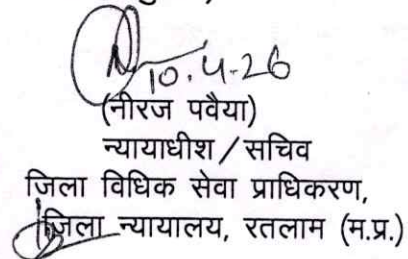 10.4.26
(नीरज पवैया)
न्यायाधीश/सचिव
जिला विधिक सेवा प्राधिकरण,
जिला न्यायालय, रतलाम (म.प्र.)